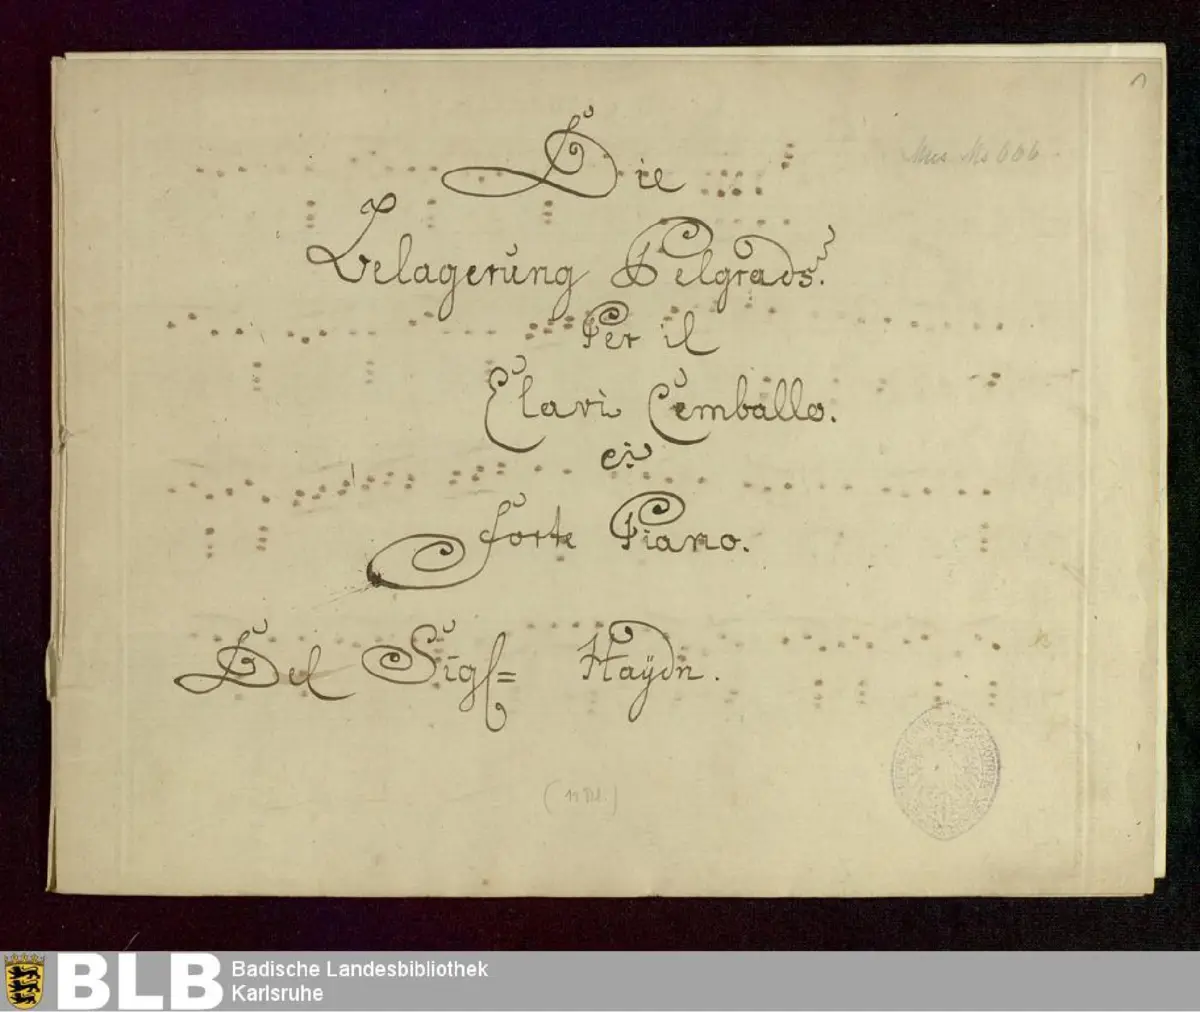 Mus. Ms 666
Die
Belagerung Belgrads.
Per il
Clavi Cemballo.
ei
Forte Piano.
Del Sigl= Haÿdn.
BLB Badische Landesbibliothek
Karlsruhe